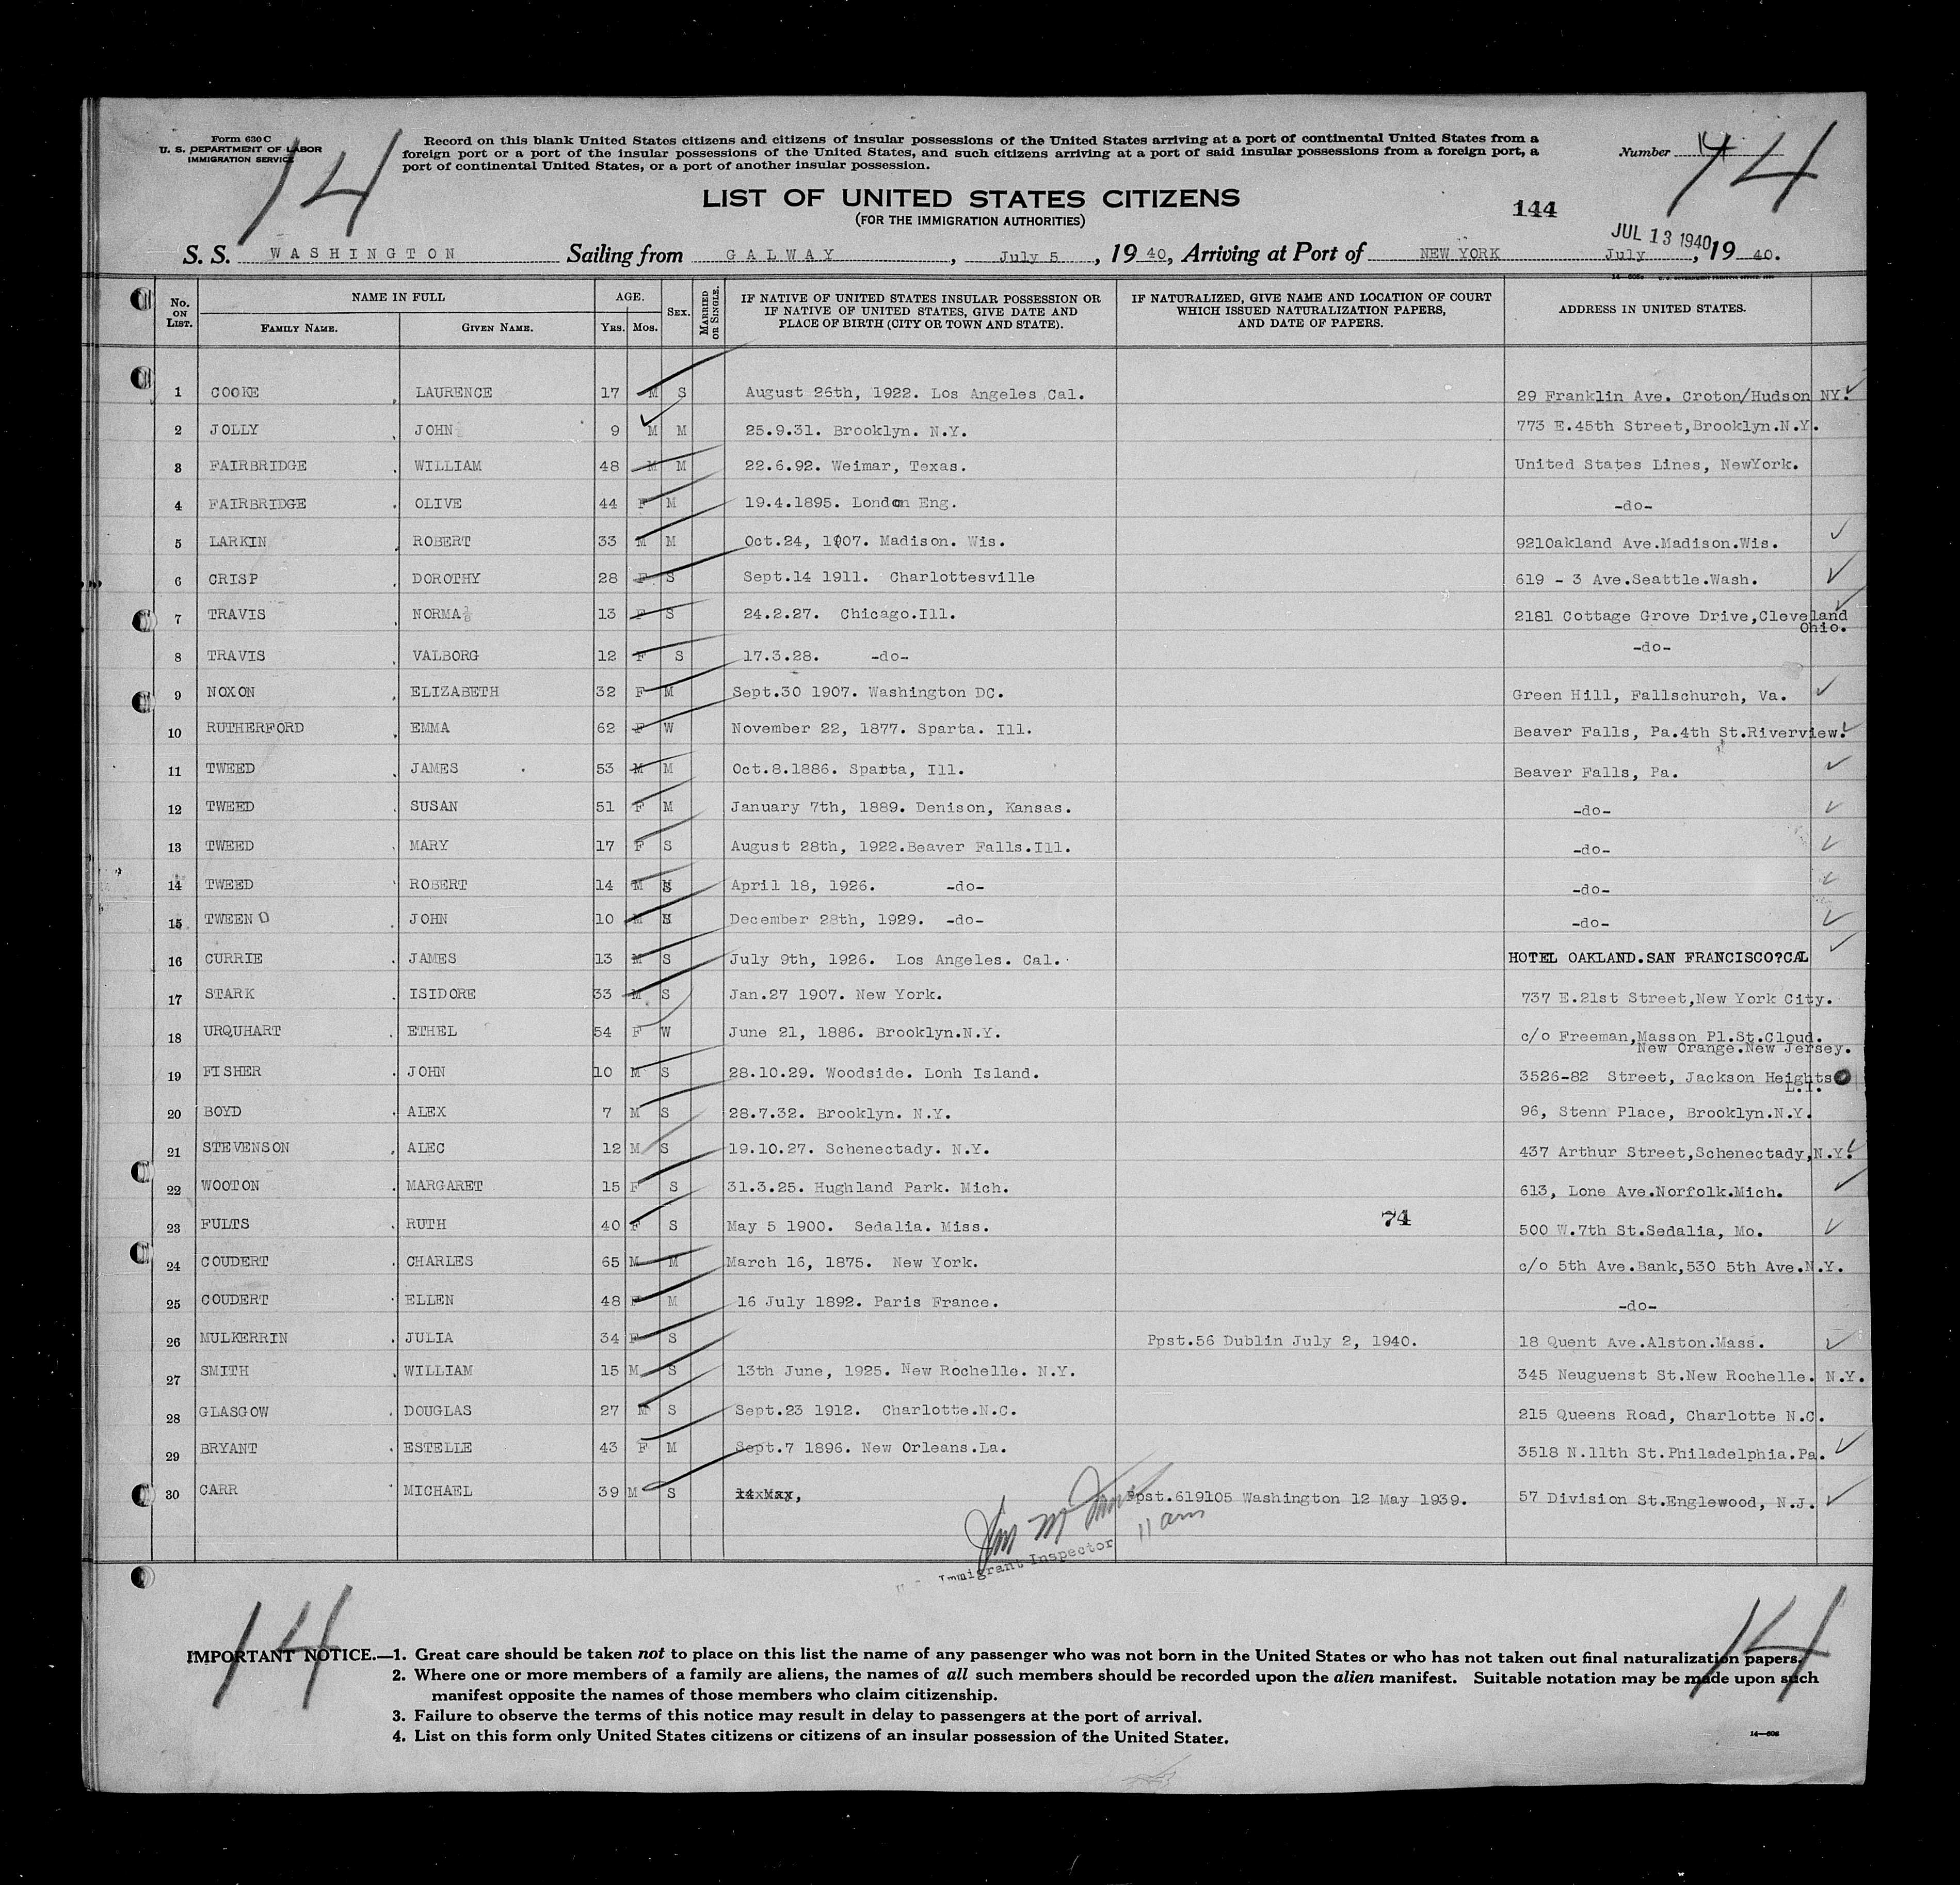 Form 630 C
U. S. DEPARTMENT OF LABOR
IMMIGRATION SERVICE
14
Record on this blank United States citizens and citizens of insular possessions of the United States arriving at a port of continental United States from a
foreign port or a port of the insular possessions of the United States, and such citizens arriving at a port of said insular possessions from a foreign port, a
port of continental United States, or a port of another insular possession.
Number 14
14
LIST OF UNITED STATES CITIZENS
(FOR THE IMMIGRATION AUTHORITIES)
144
JUL 13 1940
S. S. WASHINGTON Sailing from GALWAY, July 5, 19 40, Arriving at Port of NEW YORK July, 19 40.
No. ON LIST. NAME IN FULL FAMILY NAME. GIVEN NAME. AGE. Yrs. Mos. SEX. MARRIED OR SINGLE. IF NATIVE OF UNITED STATES INSULAR POSSESSION OR IF NATIVE OF UNITED STATES, GIVE DATE AND PLACE OF BIRTH (CITY OR TOWN AND STATE). IF NATURALIZED, GIVE NAME AND LOCATION OF COURT WHICH ISSUED NATURALIZATION PAPERS, AND DATE OF PAPERS. ADDRESS IN UNITED STATES.
1 COOKE, LAURENCE 17 M S August 26th, 1922. Los Angeles Cal. 29 Franklin Ave. Croton/Hudson NY.
2 JOLLY, JOHN½ 9 M M 25.9.31. Brooklyn. N.Y. 773 E.45th Street,Brooklyn.N.Y.
3 FAIRBRIDGE. WILLIAM 48 M M 22.6.92. Weimar, Texas. United States Lines, NewYork.
4 FAIRBRIDGE. OLIVE 44 F M 19.4.1895. London Eng. -do-
5 LARKIN, ROBERT 33 M M Oct.24, 1907. Madison. Wis. 921Oakland Ave.Madison.Wis.
6 CRISP, DOROTHY 28 F S Sept.14 1911. Charlottesville 619 - 3 Ave.Seattle.Wash.
7 TRAVIS, NORMA½ 13 F S 24.2.27. Chicago.Ill. 2181 Cottage Grove Drive,Cleveland
Ohio.
8 TRAVIS, VALBORG 12 F S 17.3.28. -do- -do-
9 NOXON, ELIZABETH 32 F M Sept.30 1907. Washington DC. Green Hill, Fallschurch, Va.
10 RUTHERFORD, EMMA 62 F W November 22, 1877. Sparta. Ill. Beaver Falls, Pa.4th St.Riverview.
11 TWEED, JAMES 53 M M Oct.8.1886. Sparta, Ill. Beaver Falls, Pa.
12 TWEED. SUSAN 51 F M January 7th, 1889. Denison, Kansas. -do-
13 TWEED MARY 17 F S August 28th, 1922.Beaver Falls.Ill. -do-
14 TWEED ROBERT 14 M S April 18, 1926. -do- -do-
15 TWEEN D. JOHN 10 M S December 28th, 1929. -do- -do-
16 CURRIE. JAMES 13 M S July 9th, 1926. Los Angeles. Cal. HOTEL OAKLAND.SAN FRANCISCO?CAL
17 STARK. ISIDORE 33 M S Jan.27 1907. New York. 737 E.21st Street,New York City.
18 URQUHART. ETHEL 54 F W June 21, 1886. Brooklyn.N.Y. c/o Freeman,Masson Pl.St.Cloud.
New Orange.New Jersey.
19 FISHER. JOHN 10 M S 28.10.29. Woodside. Lonh Island. 3526-82 Street, Jackson Heights
L.I.
20 BOYD. ALEX 7 M S 28.7.32. Brooklyn. N.Y. 96, Stenn Place, Brooklyn.N.Y.
21 STEVENSON, ALEC 12 M S 19.10.27. Schenectady. N.Y. 437 Arthur Street,Schenectady,N.Y.
22 WOOTON. MARGARET 15 F S 31.3.25. Hughland Park. Mich. 613, Lone Ave.Norfolk.Mich.
23 FULTS. RUTH 40 F S May 5 1900. Sedalia. Miss. 74 500 W.7th St.Sedalia, Mo.
24 COUDERT. CHARLES 65 M M March 16, 1875. New York. c/o 5th Ave.Bank,530 5th Ave.N.Y.
25 COUDERT. ELLEN 48 F M 16 July 1892. Paris France. -do-
26 MULKERRIN. JULIA 34 F S Ppst.56 Dublin July 2, 1940. 18 Quent Ave.Alston.Mass.
27 SMITH, WILLIAM 15 M S 13th June, 1925. New Rochelle. N.Y. 345 Neuguenst St.New Rochelle. N.Y.
28 GLASGOW. DOUGLAS 27 M S Sept.23 1912. Charlotte.N.C. 215 Queens Road, Charlotte N.C.
29 BRYANT. ESTELLE 43 F M Sept.7 1896. New Orleans.La. 3518 N.11th St.Philadelphia.Pa.
30 CARR MICHAEL 39 M S Ppst.619105 Washington 12 May 1939. 57 Division St.Englewood, N.J.
11 am
Immigrant Inspector
14
14
IMPORTANT NOTICE.—1. Great care should be taken not to place on this list the name of any passenger who was not born in the United States or who has not taken out final naturalization papers.
2. Where one or more members of a family are aliens, the names of all such members should be recorded upon the alien manifest. Suitable notation may be made upon such
manifest opposite the names of those members who claim citizenship.
3. Failure to observe the terms of this notice may result in delay to passengers at the port of arrival.
4. List on this form only United States citizens or citizens of an insular possession of the United States.